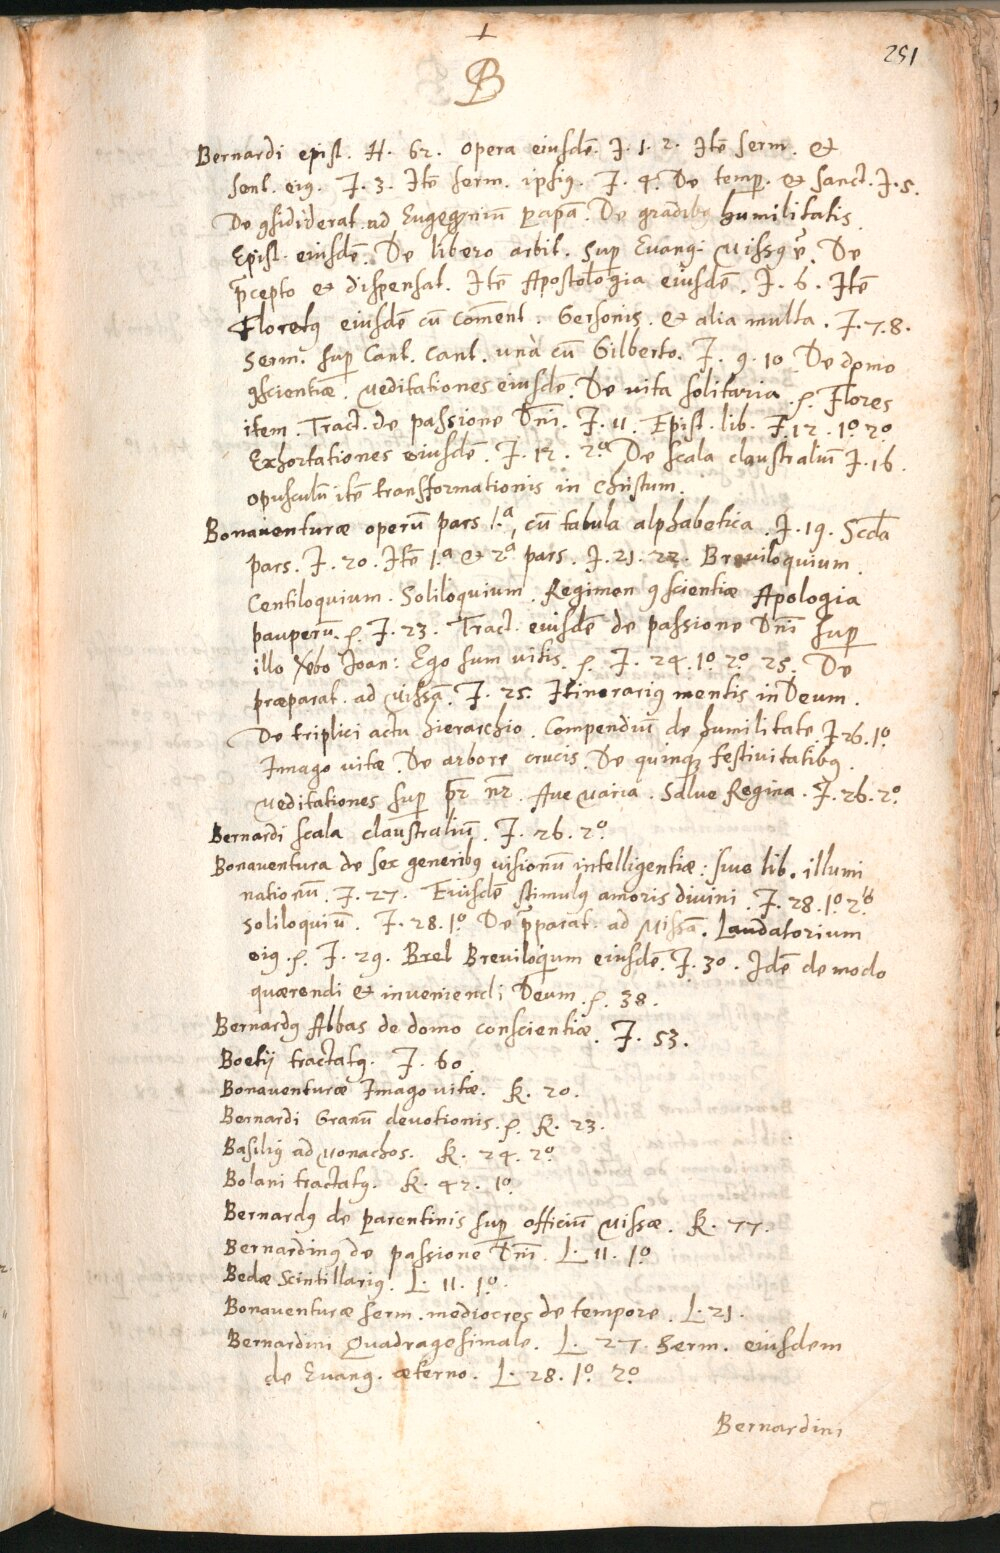 1
251
B
Bernardi epist. H. 62. opera eiusdē. J. 1. 2. Itē serm. et
sent. eiꝰ. J. 3. Itē serm. ipsiꝰ. J. 4. De temp. et sanct. J. 5.
De ꝯsididerat. ad Eugegeniū Papā. De gradibꝰ humilitatis.
Epist. eiusdē. De libero arbit. Sup Evang. Missꝰ ē. De
p̄cepto et dispensat. Itē Apostologia eiusdē. J. 6. Itē
Floretꝰ eiusdē cū Coment. Gersonis. et alia multa. J. 7. 8.
Serm. sup Cant. Cant. unà cū Gilberto. J. 9. 10. De domo
ꝯscientiæ. Meditationes eiusdē. De vita solitaria. Flores
item. Tract. de passione Dn̄i. J. 11. Epist. lib. J. 12. 1º 2º
Exhortationes eiusdē. J. 12. 2º De scala claustraliū J. 16.
opusculū itē transformationis in Christum.
Bonaventuræ operū pars 1.ª, cū tabula alphabetica. J. 19. Scd̄a
pars. J. 20. Itē 1.ª et 2ª pars. J. 21. 22. Breviloquium.
Centiloquium. Soliloquium. Regimen ꝯscientiæ Apologia
pauperū. J. 23. Tract. eiusdē de passione Dn̄i sup
illo Verbo Joan: Ego sum vitis. J. 24. 1º. 2º. 25. De
præparat. ad Missā. J. 25. Itinerariꝰ mentis in Deum.
De triplici actu hierarchio. Compendiū de humilitate J. 26. 1º
Imago vitæ. De arbore crucis. De quinqꝫ festivitatibꝰ.
Meditationes sup pr̄ nr̄. Ave Maria. Salve Regina. J. 26. 2º
Bernardi scala claustraliū. J. 26. 2º
Bonaventura de sex generibꝰ visionū intelligentiæ: sive lib. illumi
nationū. J. 27. Eiusdē stimulꝰ amoris divini. J. 28. 1º 2º
soliloquiū. J. 28. 1º De p̄parat. ad Missā. Laudatorium
eiꝰ. J. 29. Brel Breviloquium eiusdē. J. 30. Idē de modo
quærendi et inveniendi Deum. 38.
Bernardꝰ Abbas de domo conscientiæ. J. 53.
Boetij tractatꝰ. J. 60.
Bonaventuræ Imago vitæ. K. 20.
Bernardi Granū devotionis. K. 23.
Basiliꝰ ad Monachos. K. 24. 2º
Bolani tractatꝰ. K. 42. 1º
Bernardꝰ de Parentinis sup officiū Missæ. K. 77.
Bernardinꝰ de passione Dn̄i. L. 11. 1º
Bedæ Scintillariꝰ. L. 11. 1º.
Bonaventuræ serm. mediocres de tempore. L. 21.
Bernardini Quadragesimale. L. 27. Serm. eiusdem
de Evang. æterno. L. 28. 1º. 2º
Bernardini